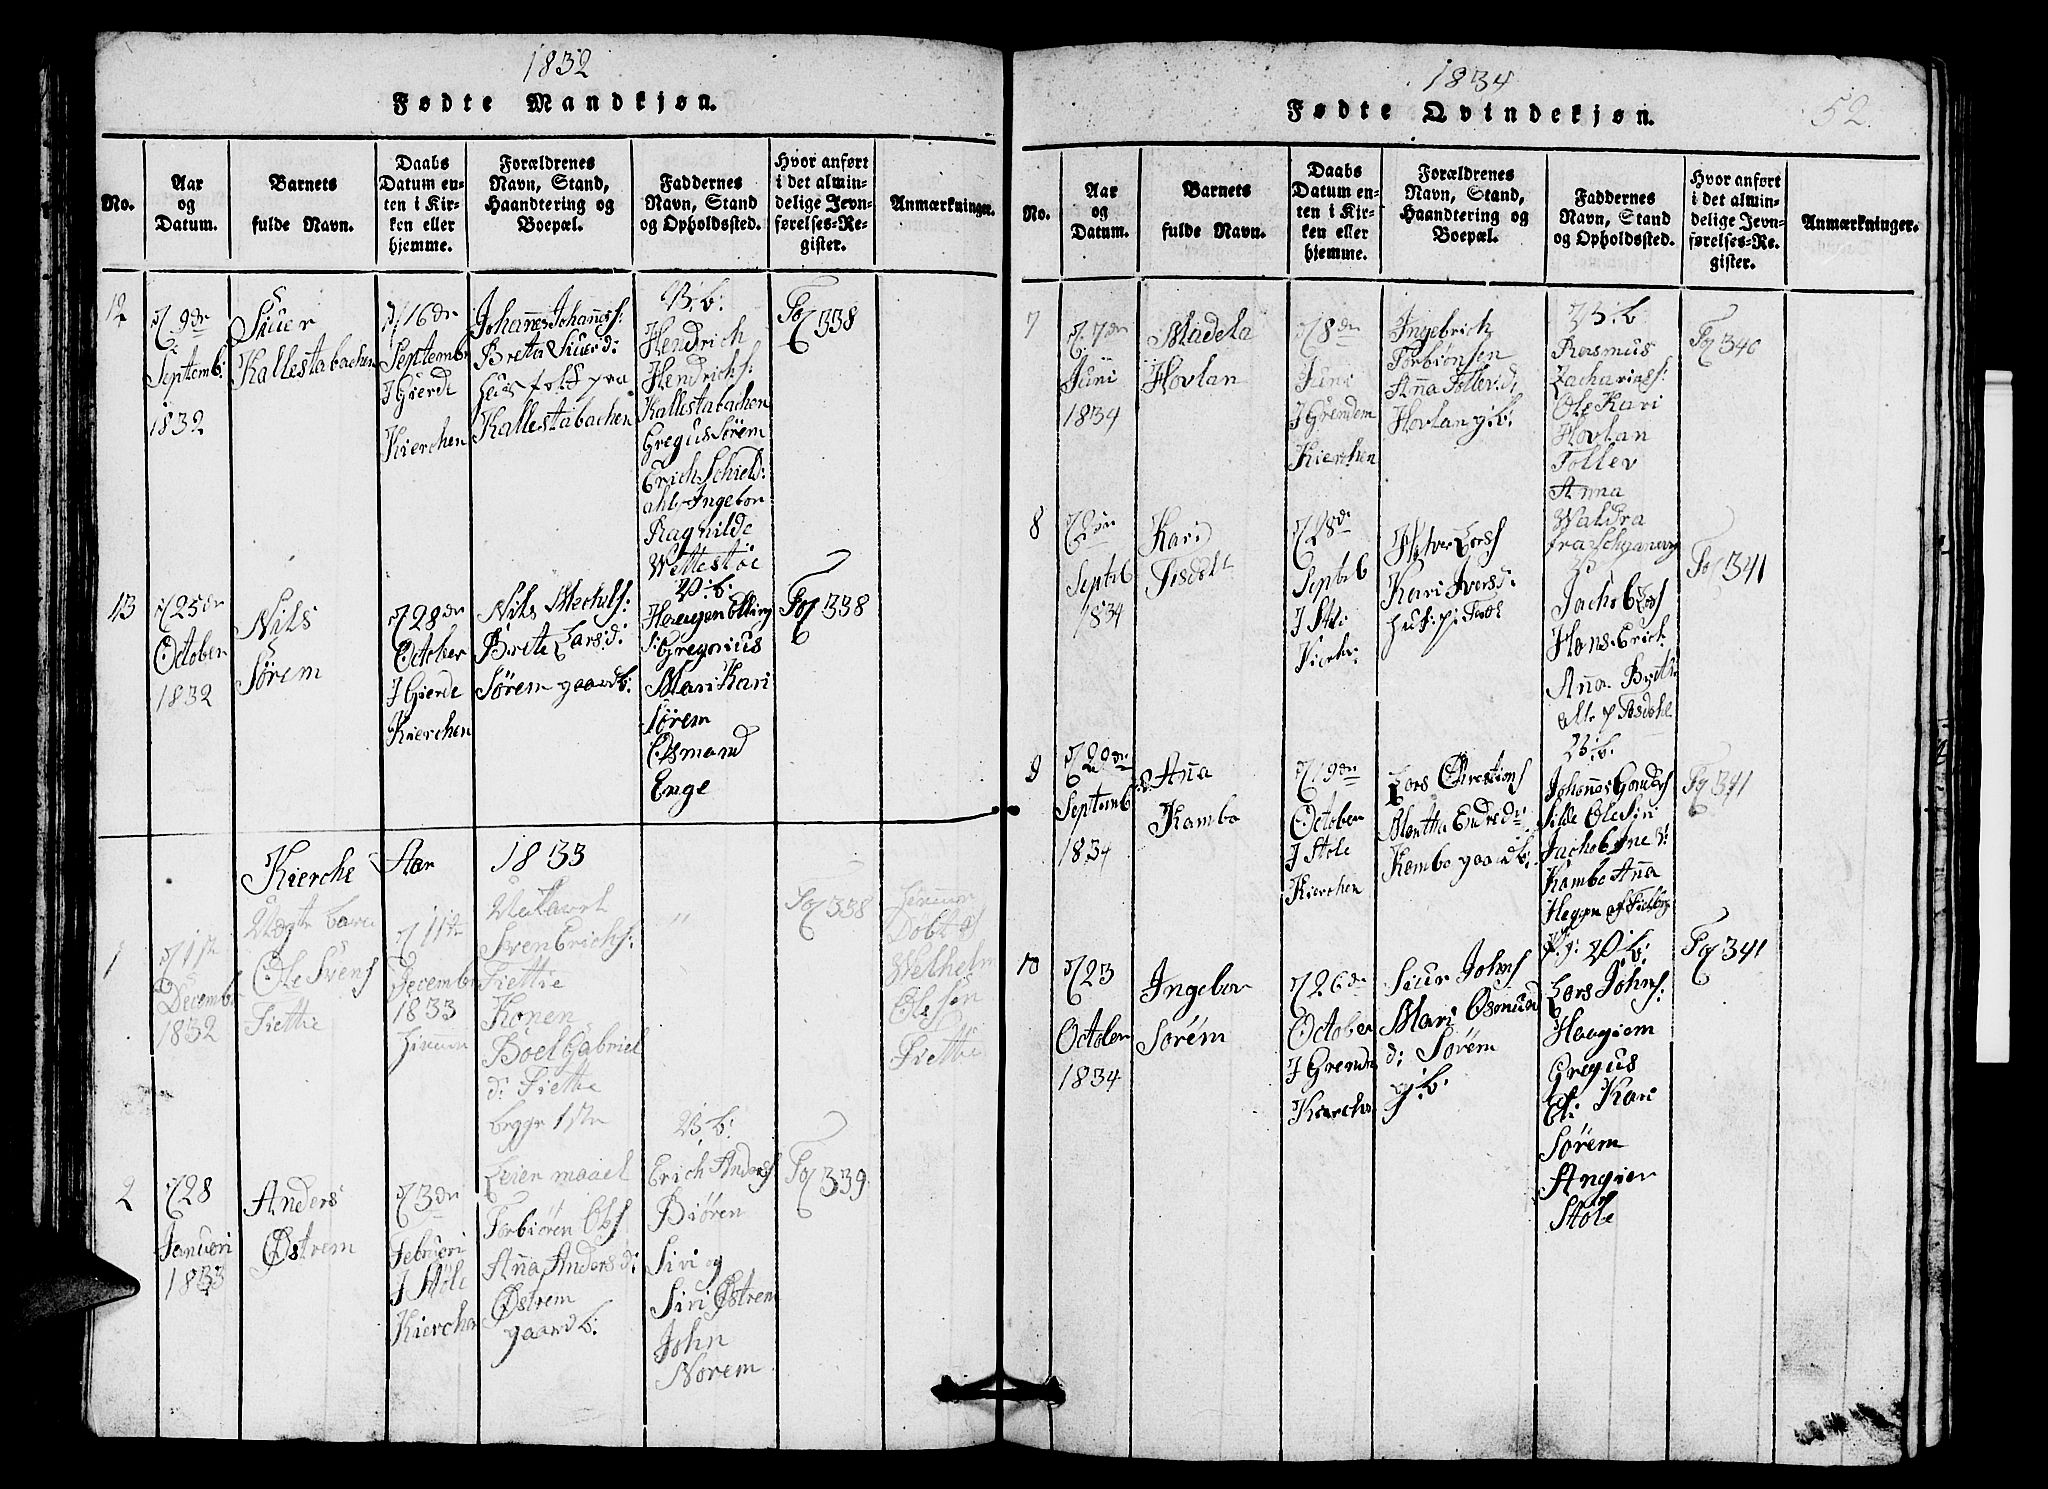 1832
Fødte Mandkjøn.
No.
Aar
og
Datum.
Barnets
fulde Navn.
Daabs
Datum en-
ten i Kir-
ken eller
hjemme.
Forældrenes
Navn, Stand,
Haandtering og
Boepæl.
Faddernes
Navn, Stand
og Opholdssted.
Hvor anført
i det almin-
delige Jevn-
førelses-Re-
gister.
Anmærkninger.
12
9de
Septemb:
1832
Siuer
Kallestabachen
16de
Septembr
I Gierde
Kierchen
Johannes Johanness:
Breta Siuersd:
Huusfolk paa
Kallestabachen
V: b:
Hendrich
Hendrichs:
Kallestabachen
Gregus Sørem
Erich Schiels:
ahl Ingebor
Ragnilde
Wettestøe
Fo/338
13
25de
October
1832
Nils
Sørem
28de
October
I Gierde
Kierchen
Nils Mechels:
Brete Larsd:
Sørem gaardb:
V: b:
Haagen Elling
S: Gregorius
Mari Kari
Sørem
Osmand
Enge
Fo/338
Kierche Aar 1833
1
11te
December
1832
Uægte barn
Ole Svens
Fiettie
11te
December
1833
hiemm
Sven Erichs:
Fiettie
Konen
Boel Gabriel
d: Fiettie
begge 1ste
Leiermaael
"
Fo/338
hiemme
Dobt af
Welhelm
Olesen
Fiettie
2
28
Januari
1833
Anders
Østrem
3de
Februari
I Støle
Kierchen
Torbiøren Ols
Anna Andersd:
Østrem
gaardb:
V: b:
Erich Anders
Biøren
Siri og
Siri Østrem
John
Norem
Fo/339
1834
Fødte Qvindekjøn.
52
No.
Aar
og
Datum.
Barnets
fulde Navn.
Daabs
Datum en-
ten i Kir-
ken eller
hjemme.
Forældrenes
Navn, Stand,
Haandtering og
Boepæl.
Faddernes
Navn, Stand
og Opholdssted.
Hvor anført
i det almin-
delige Jevn-
førelses-Re-
gister.
Anmærkninger.
7
7de
Juni
1834
Madela
Hovlan
8de
Juni
I Grendem
Kierchen
Ingebrict
Torbiønsen
Anna Tollevsd:
Hovlan g: b:
V: b:
Rasmus
Zacharias:
Ole Kari
Hovlan
Tollev
Anna
Waldra
Fo/340
8
Septeb
1834
Kari
28de
Septeb
I Støle
Kierke
Halver Lars
Kari Iversd:
Jachob Lars
Hans Erich
Anna Brete
alle p Tesdahl
Fo/341
9
20de
Septemb
1834
Anna
Kambo
19de
October
I Støle
Kierchen
Lars Christians
Martha Endred:
Kambo gaardb:
V: b:
Johannes
Silde Ole Siu
Kambo Anna
Fo/341
10
23
October
1834
Ingebor
Sørem
26de
October
I Grende
Kierchen
Siur Johns
Mari Osmund
d: Sørem
g: b:
V: b:
Lars Johns:
Haagiem
Gregus
El: Kari
Sørem
Angier
Støle
Fo/341